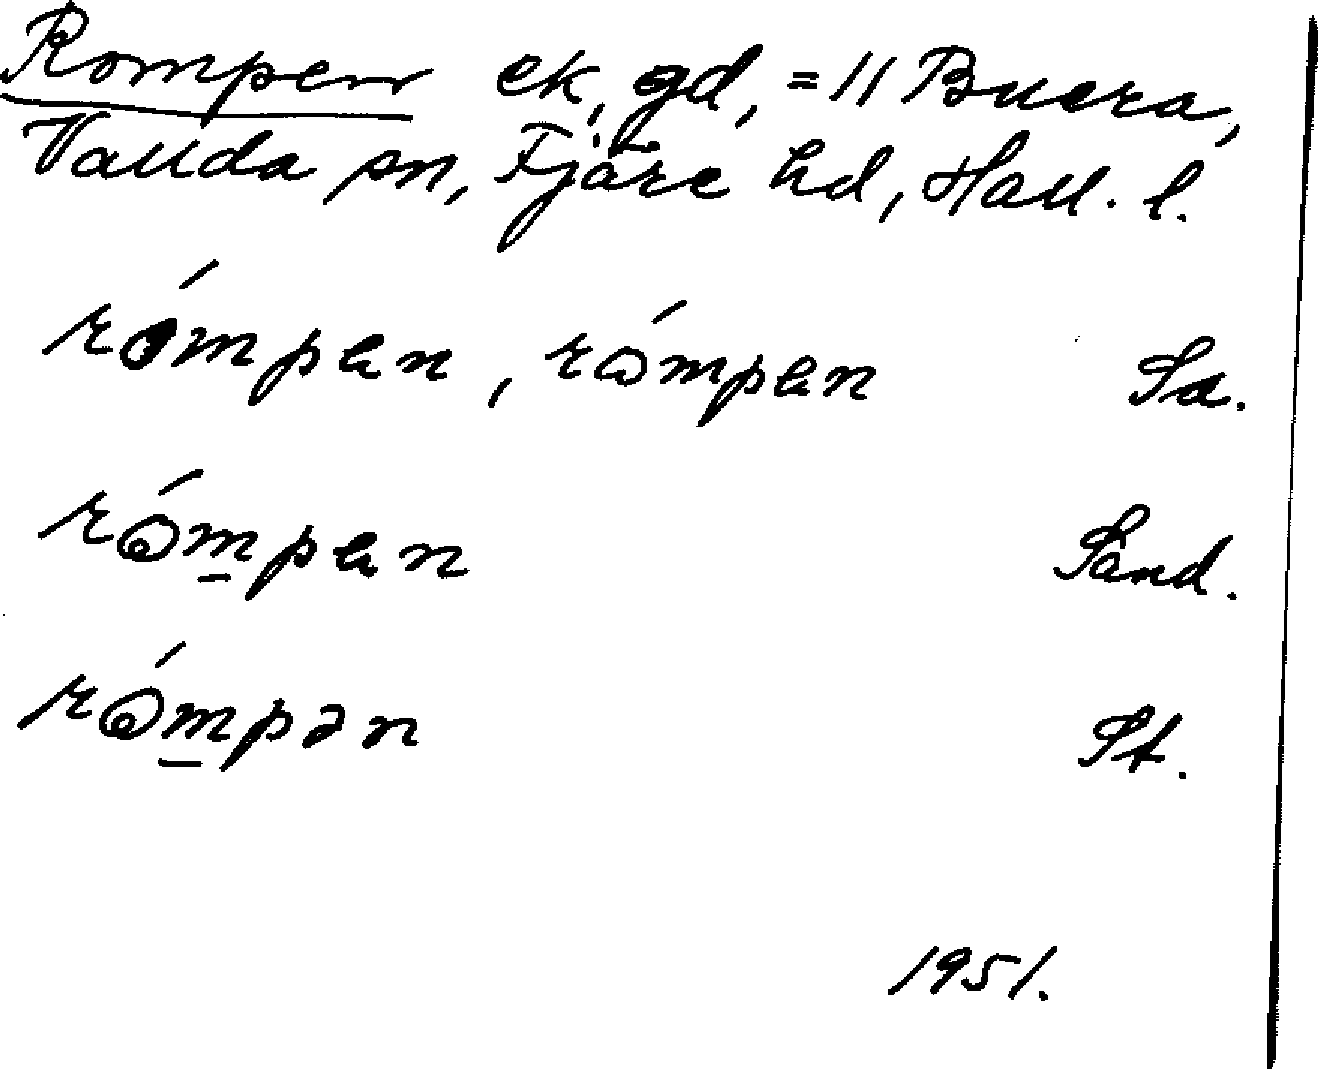 Rompen ek, gd, = 11 Buera,
Vallda sn, Fjäre hd, Hall. l.
rómpen, rómpen Sa.
rómpen Sand.
rómpən St.
1951.